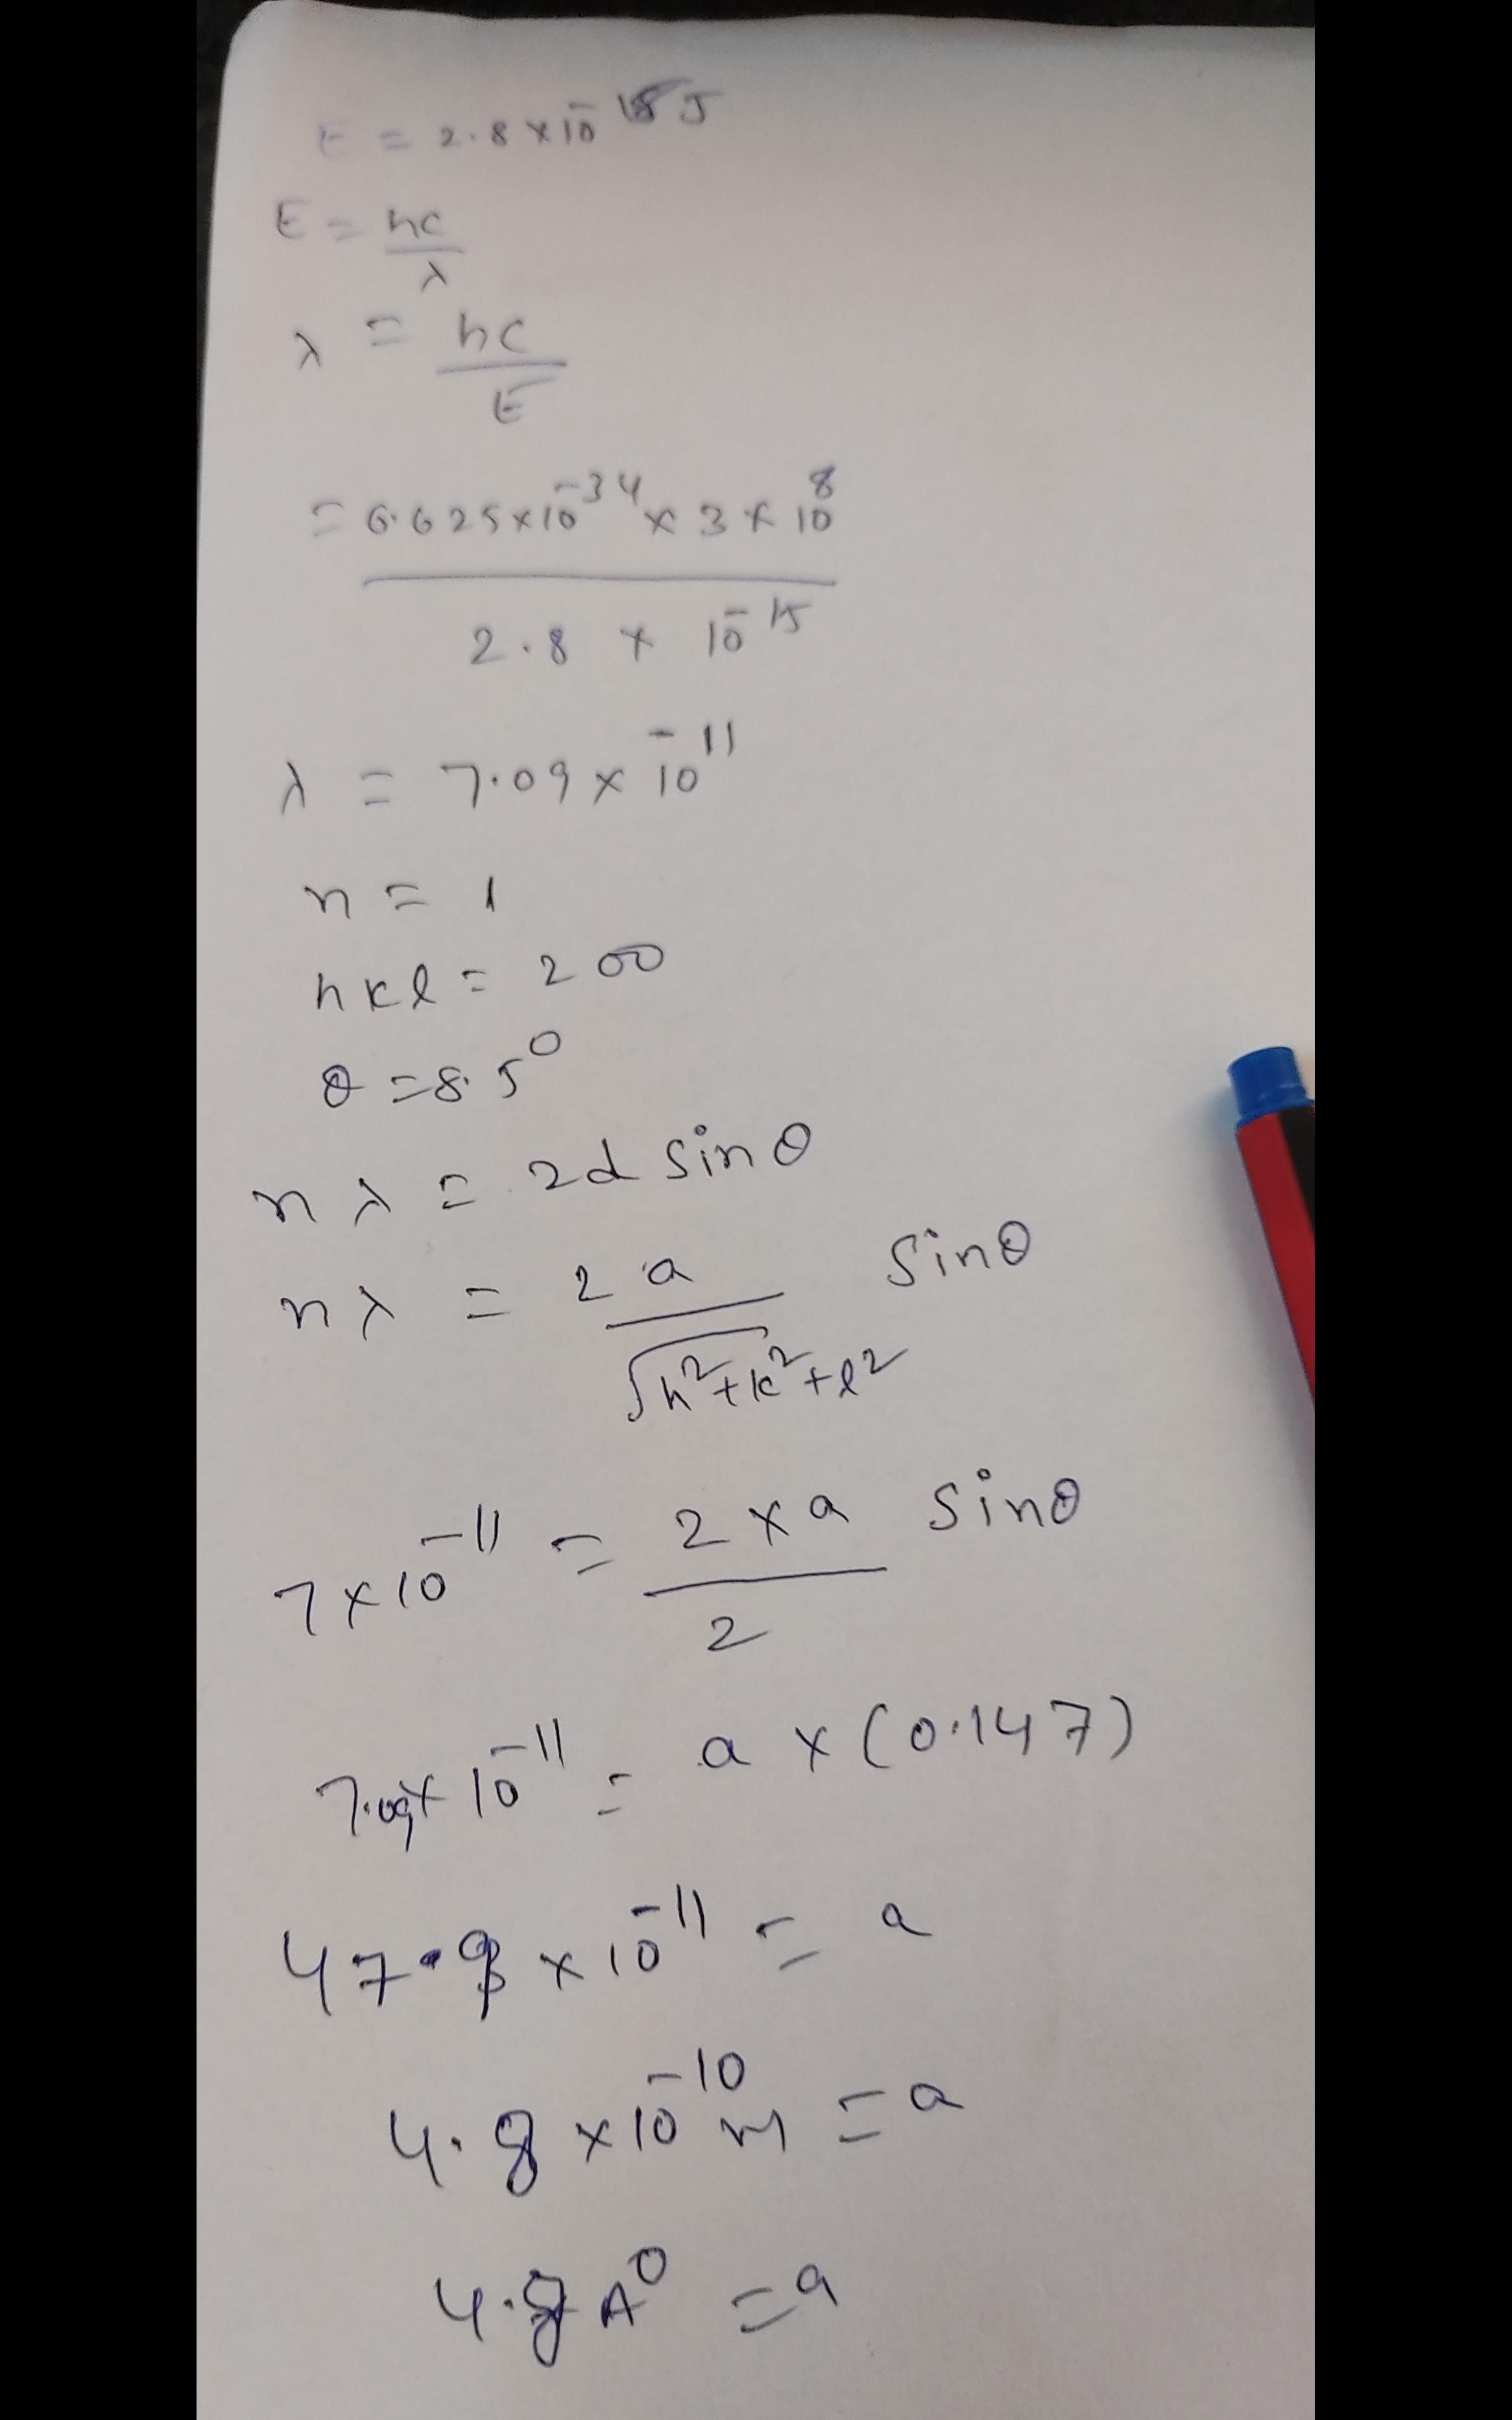 E = 2.8 x 10^-15 J
E = hc/λ
λ = hc/E
= 6.625 x 10^-34 x 3 x 10^8
2.8 x 10^-15
λ = 7.09 x 10^-11
n = 1
hkl = 200
θ = 8.5°
nλ = 2d sinθ
nλ = 2a/√h²+k²+l² sinθ
7 x 10^-11 = 2 x a/2 sinθ
7.09 x 10^-11 = a x (0.147)
x 10^-11 = a
4.8 x 10^-10 m = a
4.8 A° = a